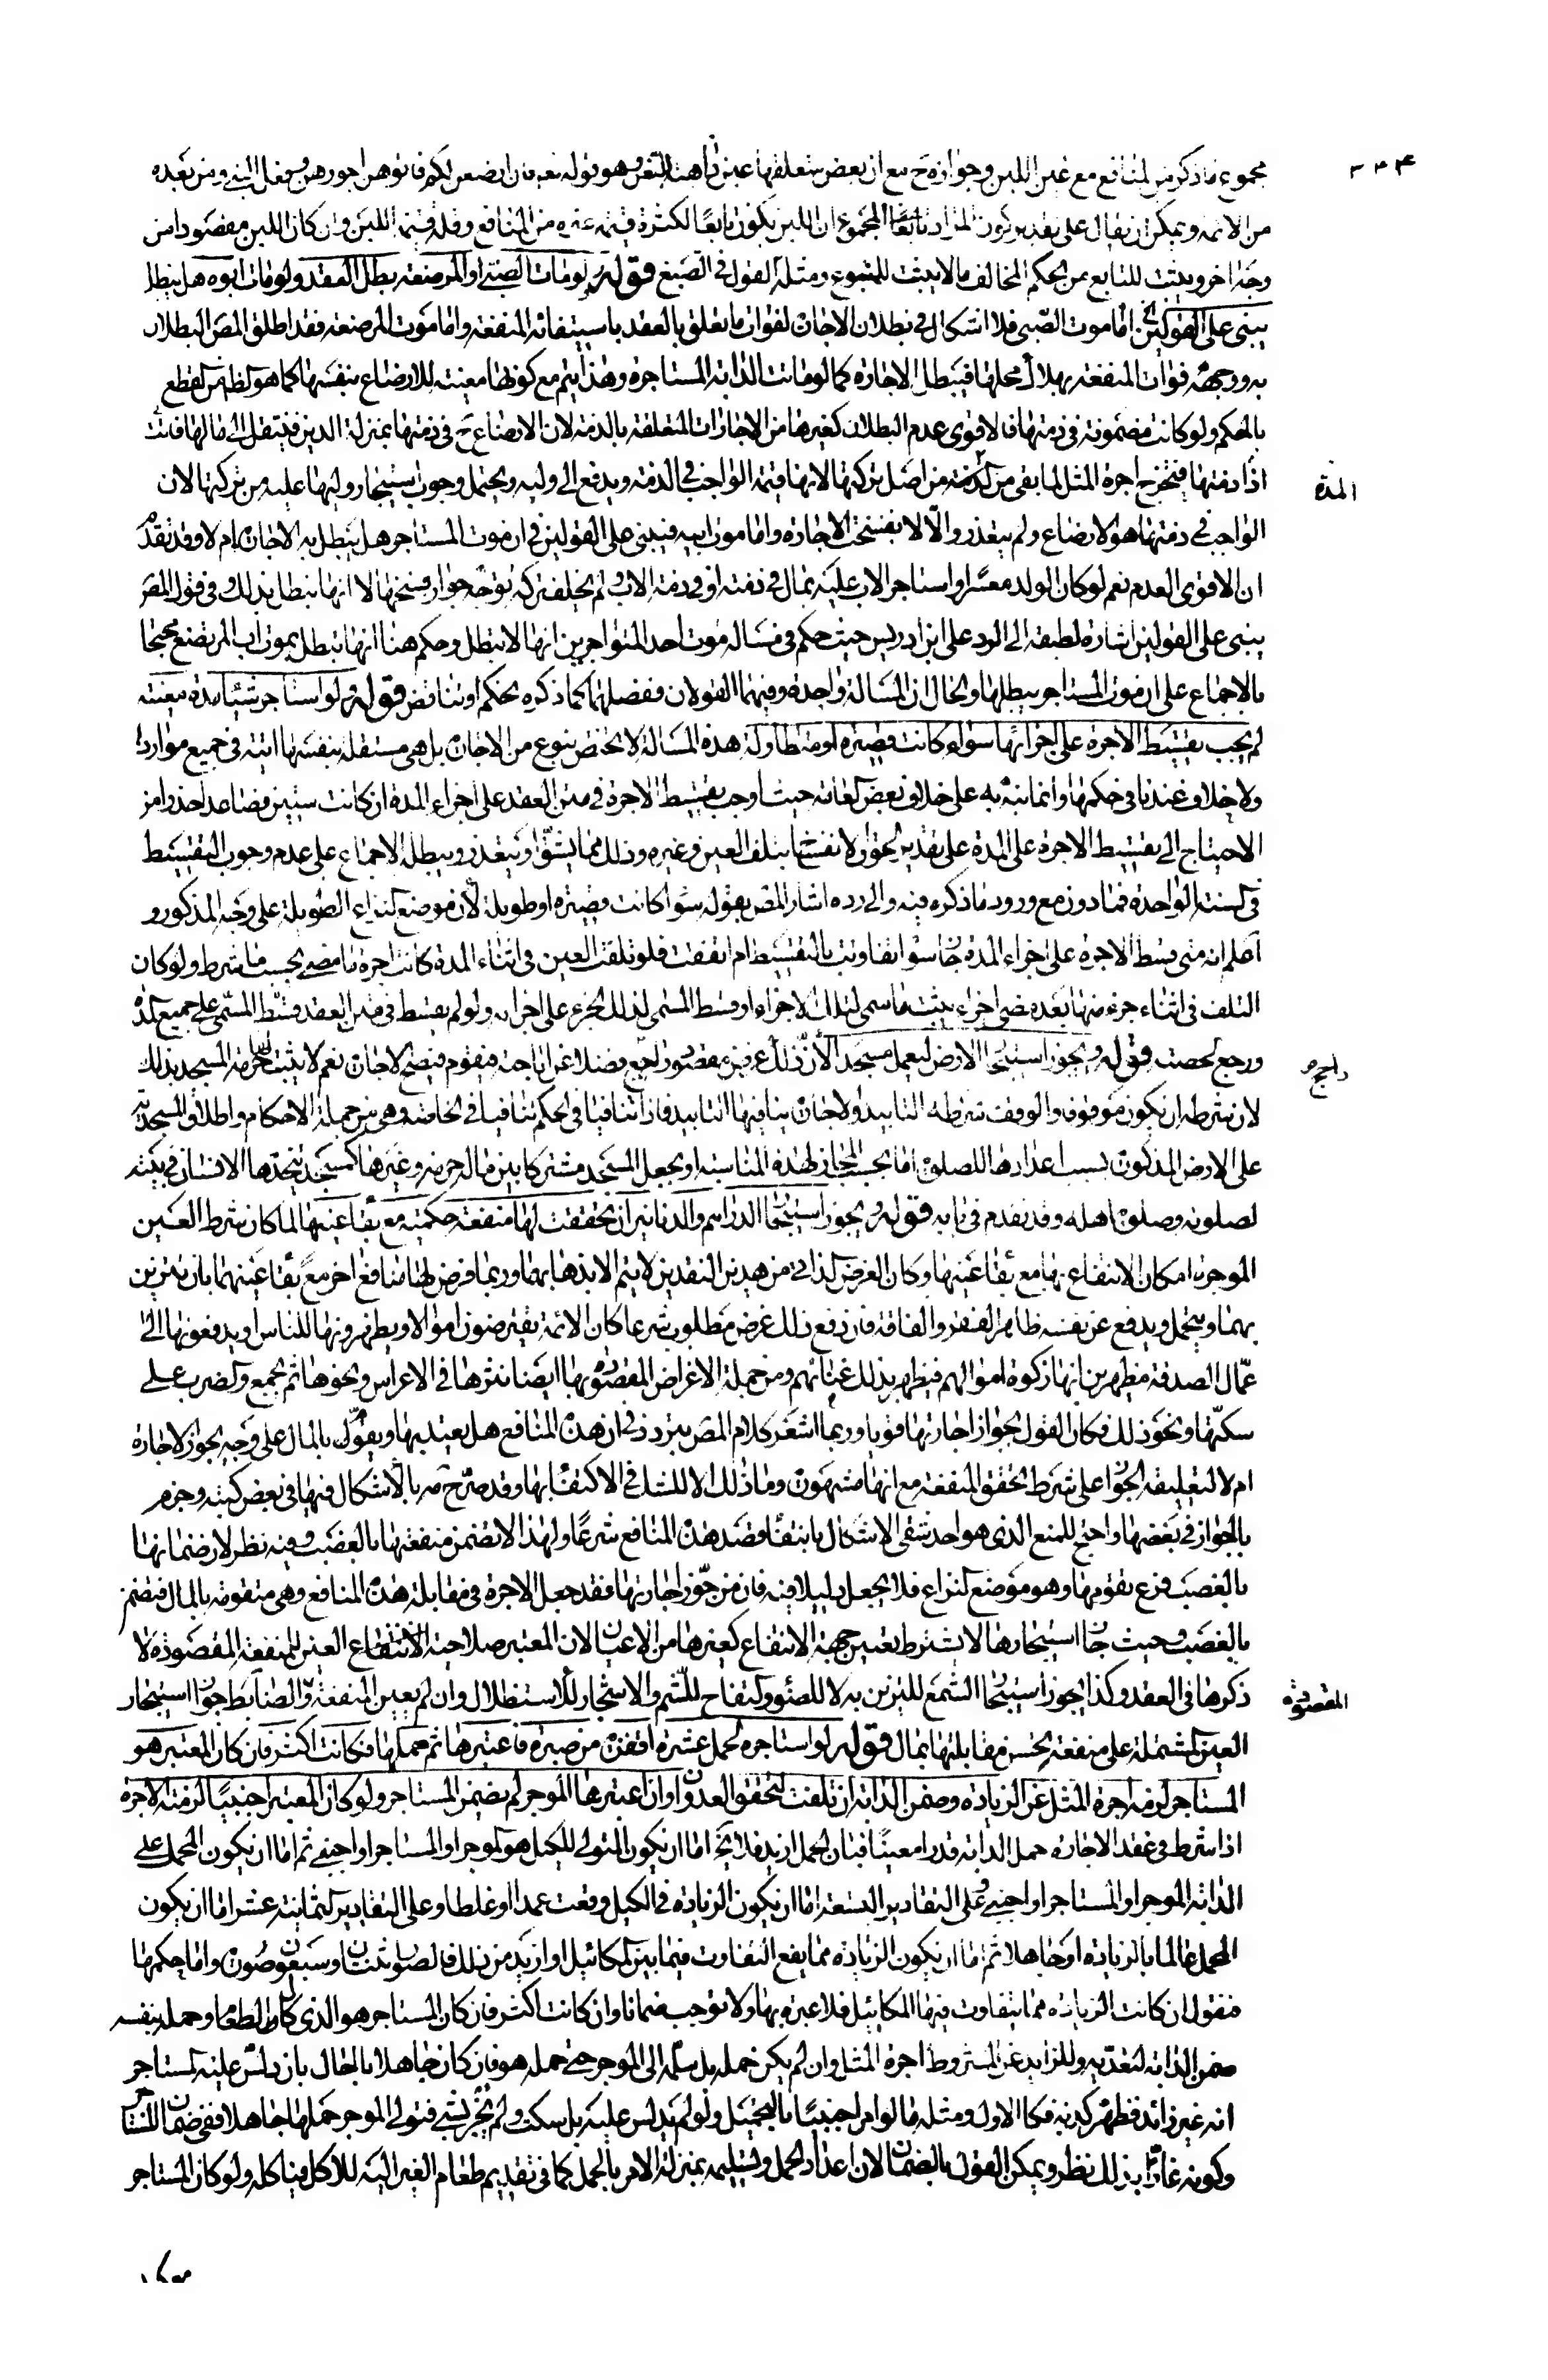 مجموع ما ذكر من المنافع مع عين اللبن وجوازه ح مع ان بعض متعلقها عين ثابت هنا بالنص وهو قوله تعه فان ارضعن لكم فاتوهن اجورهن وبفعل النبي ومن بعده
من الائمه ويمكن ان يقال على تقدير كون المراد تابعا المجموع ان اللبن يكون تابعا لكثرة قيمه غيره من المنافع وقلة قيمة اللبن وان كان اللبن مقصودا من
وجه اخر ويثبت للتابع من الحكم المخالف ما لا يثبت للمتبوع ومثله القول في الصبغ قوله ولو مات الصبي او المرضعه بطل العقد ولو مات ابوه هل يبطل
يبنى على القولين اما موت الصبي فلا اشكال في بطلان الاجارة لفوات ما تعلق بالعقد باستيفائه المنفعة واما موت المرضعه فقد اطلق المص البطلان
به ووجهه فوات المنفعة بهلاك محلها فيبطل الاجاره كما لو ماتت الدابه المستاجره وهذا يتم مع كونها معينه للارضاع بنفسها كما هو الظ من القطع
بالحكم ولو كانت مضمونه في ذمتها فالاقوى عدم البطلان كغيرها من الاجارات المتعلقه بالذمه لان الارضاع ح في ذمتها بمنزلة الدين فينتقل الى مالها فاتت
اذا دفنتها فيخرج اجره المثل لما بقى من المدة من اصل تركتها لانها قيمة الواجب في الذمه ويدفع الى وليه ويحتمل وجوب استيجار وليها عليه من تركتها لان
المدة
الواجب في ذمتها هو الارضاع ولم يتعذر والا لانفسخت الاجاره واما موت ابيه فيبنى على القولين في ان موت المستاجر هل يبطل به الاجارة ام لا وقد تقدم
ان الاقوى العدم نعم لو كان الولد معسرا واستاجر الاب عليه بمال في ذمته او في ذمة الاب ولم يخلف تركه توجه جواز فسخها لا انها تبطل بذلك وفي قول المص
يبنى على القولين اشاره لطيفه الى الرد على ابن ادريس حيث حكم في مساله موت احد المتواجرين انها لا تبطل وحكم هنا انها تبطل بموت اب المرتضع محتجا
بالاجماع على ان موت المستاجر يبطلها والحال ان المسالة واحده وفيهما القولان ففصلهما كما ذكره تحكم او تناقض قوله ولو استاجر شيئا مدة معينه
لم يجب تقسيط الاجره على اجزائها سواء كانت قصيره او متطاولة هذه المسالة لا تختص بنوع من الاجارة بل هي مستقله بنفسها اتيه في جميع مواردها
ولا خلاف عندنا في حكمها وانما نبه به على خلاف بعض العامه حيث اوجب تقسيط الاجرة في متن العقد على اجزاء المدة ان كانت سنتين فصاعدا حذرا من
الاحتياج الى تقسيط الاجرة على المدة على تقدير لحوق الانفساخ بتلف العين وغيره وذلك مما يشق او يتعذر ويبطله الاجماع على عدم وجوب التقسيط
في السنة الواحدة فما دون مع ورود ما ذكره فيه والى رده اشار المص بقوله سواء كانت قصيره او طويلة لان موضع النزاع الطويلة على وجه المذكور و
اعلم انه متى قسط الاجره على اجزاء المدة جاز سواء تفاوتت بالتقسيط ام اتفقت فلو تلفت العين في اثناء المدة كانت اجرة ما مضى بحسب ما شرط ولو كان
التلف في اثناء جزء منها بعد مضى اجزاء يثبت ما سمى لتلك الاجزاء وقسط المسمى لذلك الجزء على اجزائه ولو لم يقسط في متن العقد قسط المسمى على جميع المدة
ورجع بحصته قوله ويجوز استيجار الارض ليعمل مسجدا لان ذلك غرض مقصود راجح فضلا عن اباحته متقوم فيصح الاجارة نعم لا يثبت لها حرمه المسجد بذلك
راجح
لان شرطه ان يكون موقوفا والوقف شرطه التابيد والاجارة ينافيها التابيد فاذا تنافيا في الحكم تنافيا في الخاصه وهي من جملة الاحكام واطلاق المسجدية
على الارض المذكورة بسبب اعدادها للصلوة اما بحسب المجاز لهذه المناسبه او بجعل المسجد مشتركا بين ماله حرمه وغيرها كمسجد يتخذها الانسان في بيته
لصلوته وصلوة اهله وقد تقدم في بابه قوله ويجوز استيجار الدراهم والدنانير ان تحققت لها منفعة حكميه مع بقاء عينها لما كان شرط العين
الموجرة امكان الانتفاع بها مع بقاء عينها وكان الغرض الذاتي من هذين النقدين لا يتم الا بذهابهما وربما فرض لهما منافع اخر مع بقاء عينهما بان يتزين
بهما ويتجمل ويدفع عن نفسه ظاهر الفقر والفاقه فان دفع ذلك غرض مطلوب شرعا كان الائمة يقترضون اموالا ويظهرونها للناس او يدفعونها الى
عمال الصدقه مظهرين انها زكوة اموالهم فيظهر بذلك غناؤهم ومن جملة الاغراض المقصوده بها ايضا نثرها في الاعراس ونحوها ثم تجمع والضرب على
سكتها ونحو ذلك فكان القول بجواز اجارتها قويا وربما اشعر كلام المص بتردد في ان هذه المنافع هل يعتد بها ويقول بالمال على وجه يجوز الاجاره
ام لا لتعليقه الجواز على شرط تحقق المنفعة مع انها مشهورة وما ذلك الا للشك في الاكتفاء بها وقد صرح مه بالاشكال فيها في بعض كتبه وجزم
بالجواز في بعضها واحتج للمنع الذي هو احد شقى الاشكال بانتفاء قصد هذه المنافع شرعا ولهذا لا تضمن منفعتها بالغصب وفيه نظر لان ضمانها
بالغصب فرع تقومها وهو موضع النزاع فلا يجعل دليلا فيه فان من جوز اجارتها فقد جعل الاجرة في مقابلة هذه المنافع وهي متقومه بالمال فتضمن
بالغصب وحيث جاز استيجارها لا يشترط تعيين جهة الانتفاع كغيرها من الاعيان لان المعتبر صلاحية الانتفاع العين للمنفعة المقصودة لا
ذكرها في العقد وكذا يجوز استيجار الشمع للتزين به لا للضوء والتفاح للشم والاشجار للاستظلال وان لم يعين المنفعة والضابط جواز استيجار
المقصودة
العين المشتملة على منفعة يحسن مقابلتها بمال قوله ولو استاجره لحمل عشرة اقفزة من صبرة فاعتبرها ثم حملها فكانت اكثر فان كان المعتبر هو
المستاجر لزمه اجرة المثل عن الزياده وضمن الدابه ان تلفت لتحقق العدوان وان اعتبرها الموجر لم يضمن المستاجر ولو كان المعتبر اجنبيا لزمته الاجرة
اذا شرط في عقد الاجاره حمل الدابه قدرا معينا فبان الحمل ازيد فلا يخ اما ان يكون المتولى للكيل هو الموجر او المستاجر او اجنبي ثم اما ان يكون المحمل على
الدابه الموجر او المستاجر او اجنبي وعلى التقادير التسعه اما ان يكون الزيادة في الكيل وقعت عمدا او غلطا وعلى التقادير الثمانية عشر اما ان يكون
المحمل عالما بالزيادة او جاهلا ثم اما ان يكون الزيادة مما يقع التفاوت فيها بين المكائيل او ازيد من ذلك فالصور اثنتان وسبعون صورة واما حكمها
فنقول ان كانت الزيادة مما يتفاوت فيها المكائيل فلا عبره بها ولا توجب ضمانا وان كانت اكثر فان كان المستاجر هو الذي كال الطعام وحمله بنفسه
ضمن الدابه لتعديه وللزايد عن المشروط اجرة المثل وان لم يكن حمله بل سلمه الى الموجر حتى حمله هو فان كان جاهلا بالحال بان دلس عليه المستاجر
انه غير زائد فظهر كذبه فكالاول ومثله ما لو امر اجنبيا بالتحميل ولو لم يدلس عليه بل سكت ولم يخبر بشئ فتولى الموجر حملها جاهلا ففي ضمان المستاجر
وكونه غارا بذلك نظر ويمكن القول بالضمان لان اعداد الحمل وتسليمه بمنزلة الامر بالحمل كما في تقديم طعام الغير اليه للاكل فياكله ولو كان المستاجر